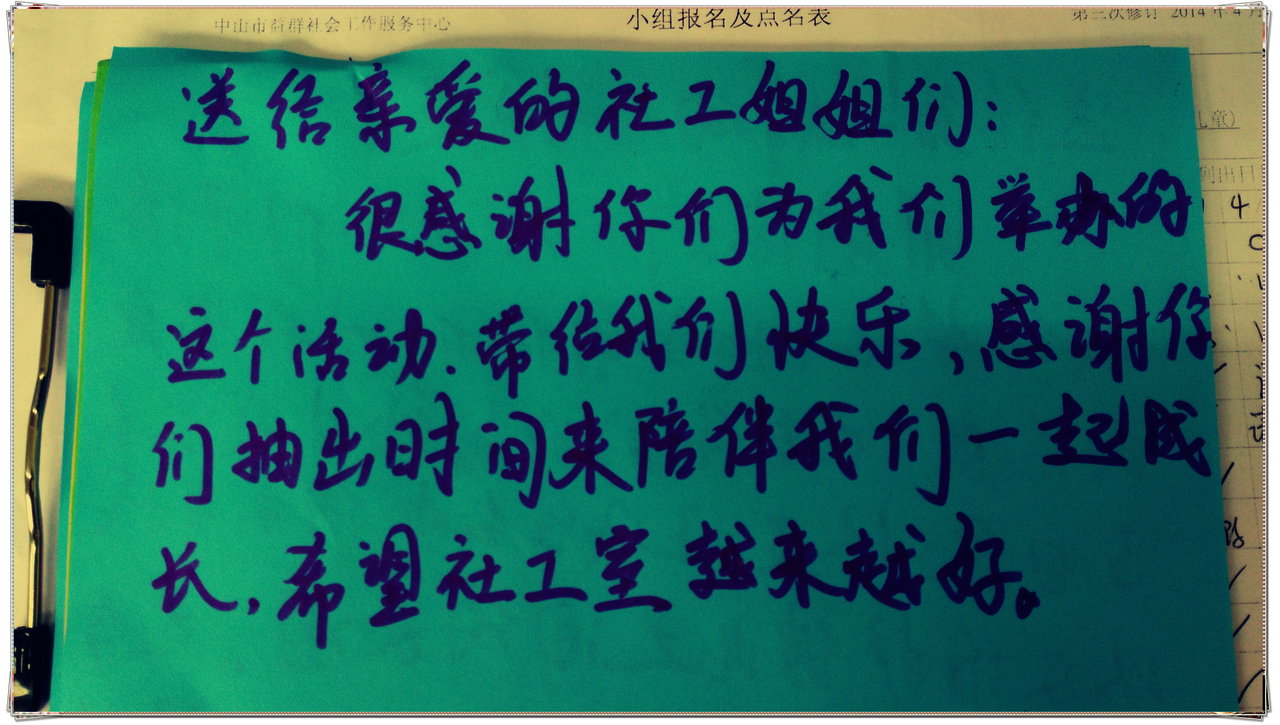 中山市益群社会工作服务中心 小组报名及点名表 第三次修订 2014 年 4 月
送给亲爱的社工姐姐们：
很感谢你们为我们举办的
这个活动.带给我们快乐,感谢你
们抽出时间来陪伴我们一起成
长,希望社工室越来越好。
儿童）
4